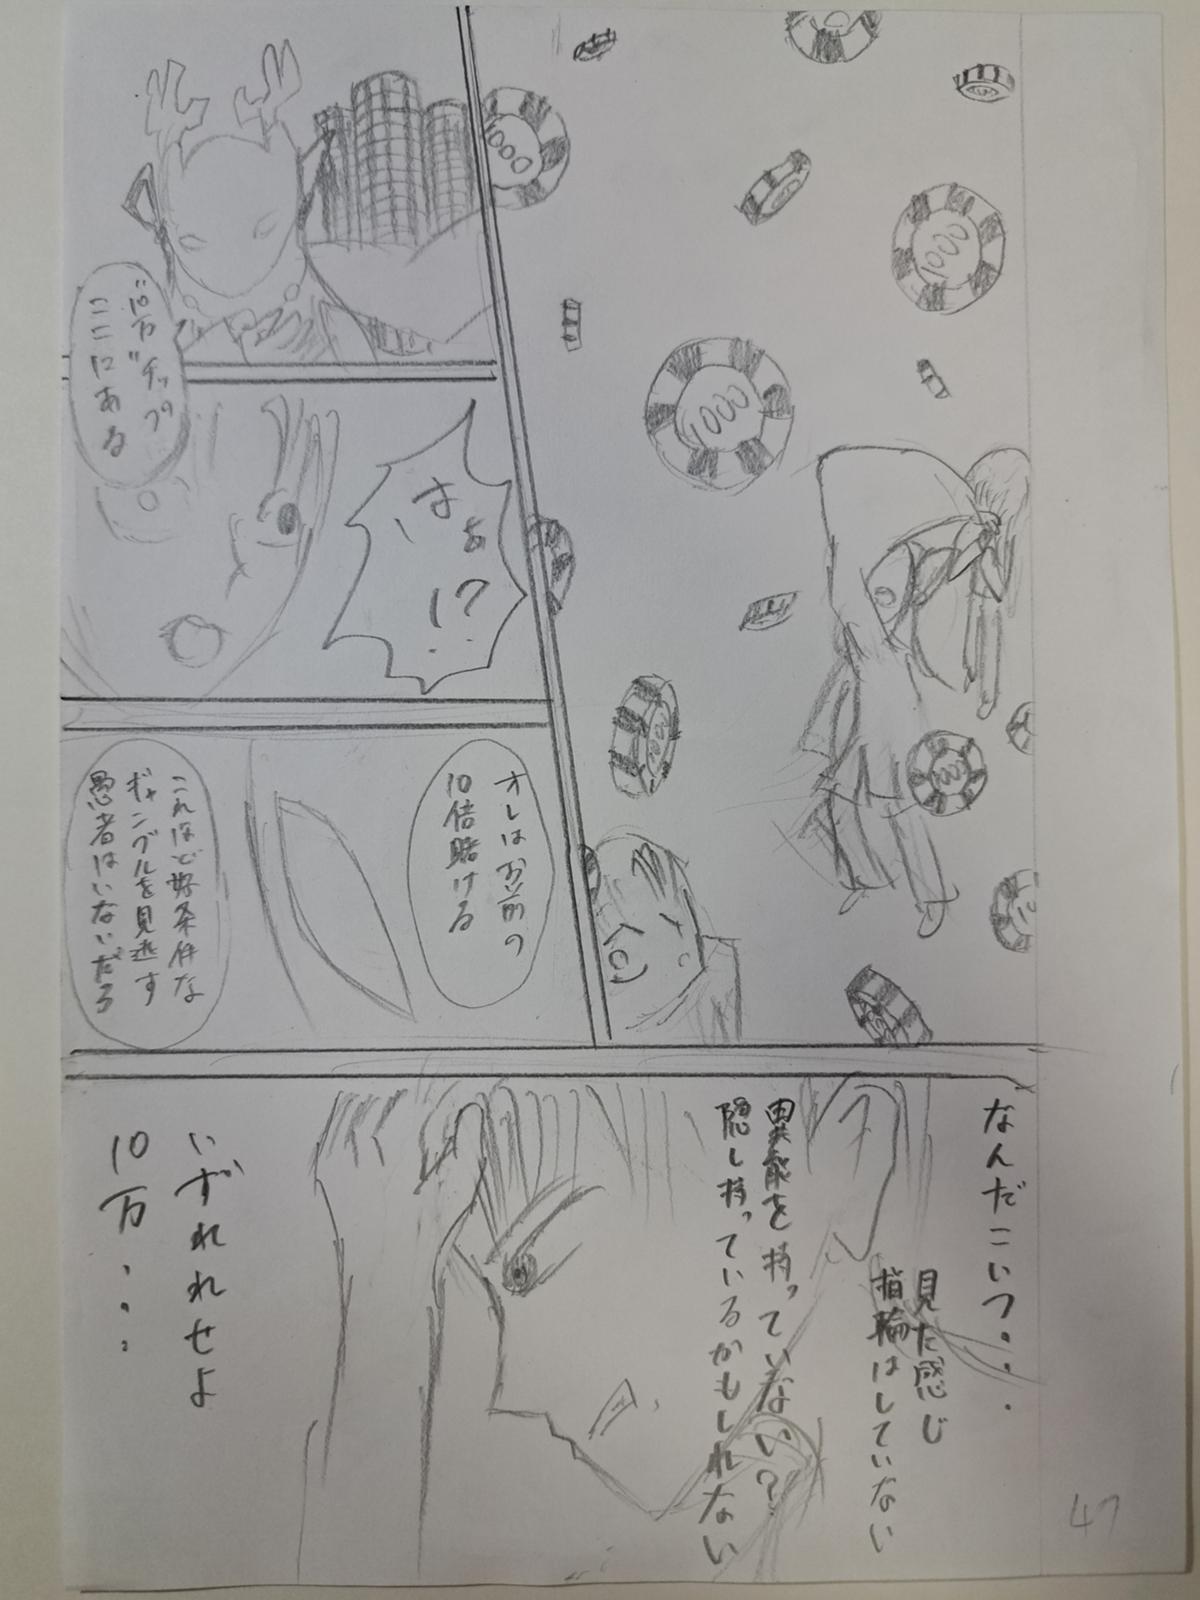 1000
1000
1000
1000
1000
"10万"チップ
ここにある
はぁ
!?
オレはお前の
10倍賭ける
これほど好条件な
ギャンブルを見逃す
愚者はいないだろ
なんだこいつ・・・
見た感じ
指輪はしていない
異能を持っていない?
隠し持っているかもしれない
いずれれせよ
10万・・・
47